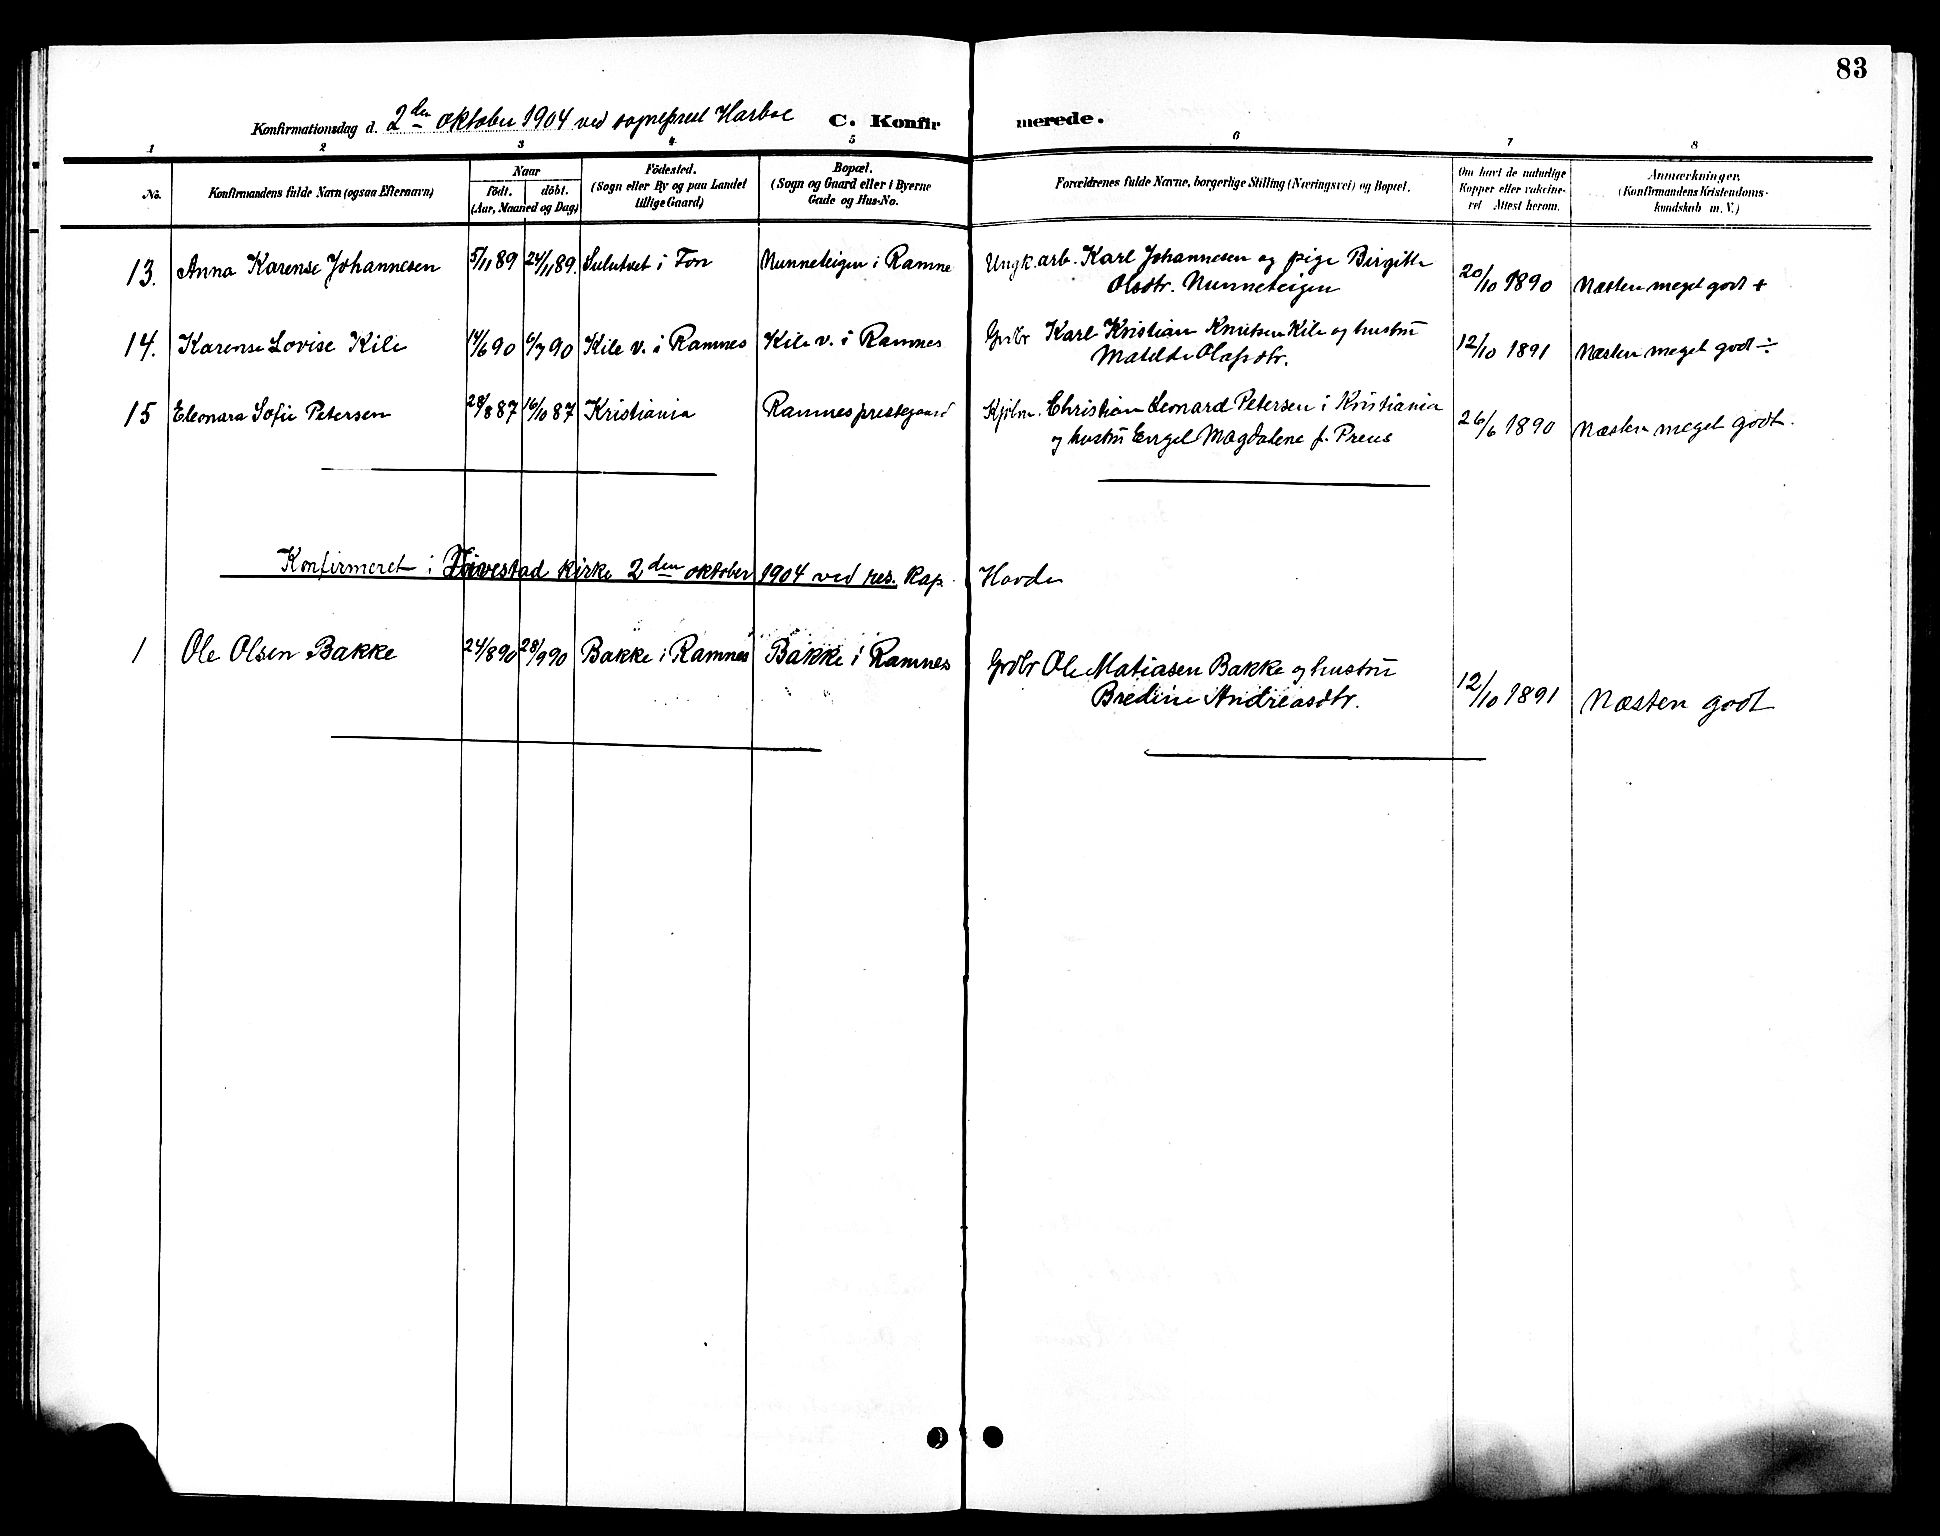 83
Konfirmationsdag d. 2den oktober 1904 ved sogneprest Harboe C. Konfirmerede.
1 2 3 4 5 6 7 8
No. Konfirmandens fulde Navn (ogsaa Efternavn) Naar födt. döbt. (Aar, Maaned og Dag) Födested. (Sogn eller By og paa Landet tillige Gaard) Bopæl. (Sogn og Gaard eller i Byerne Gade og Hus-No. Forældrenes fulde Navne, borgerlige Stilling (Næringsvei) og Bopæl. Om havt de naturlige Kopper eller vakcineret Attest herom. Anmærkninger. (Konfirmandens Kristendomskundskab m. V.)
13. Anna Karense Johannesen 5/11 89 24/11 89. i Fon Nunneteigen i Ramne Ungk. arb. Karl Johannesen og pige Birgitte
Olsdtr. Nunneteigen 20/10 1890 Næsten meget godt +
14. Karense Lovise Kile 14/6 90 6/7 90 Kile v. i Ramnes Kile v. i Ramnes Grdbr Karl Kristian Knutsen Kile og hustru
Matilde Olafsdtr. 12/10 1891 Næsten meget godt ÷
15 Eleonara Sofie Petersen 28/8 87 16/10 87 Kristiania Ramnes prestegaard Kjöbm. Christian Leonard Petersen i Kristiania
og hustru Engel Magdalene f. Preus 26/6 1890 Næsten meget godt.
Konfirmeret i Fivestad kirke 2den oktober 1904 ved res. Kap. Hovde
1 Ole Olsen Bakke 24/8 90 28/9 90 Bakke i Ramnes Bakke i Ramnes Grdbr Ole Matiasen Bakke og hustru
Bredine Andreasdtr. 12/10 1891 Næsten godt